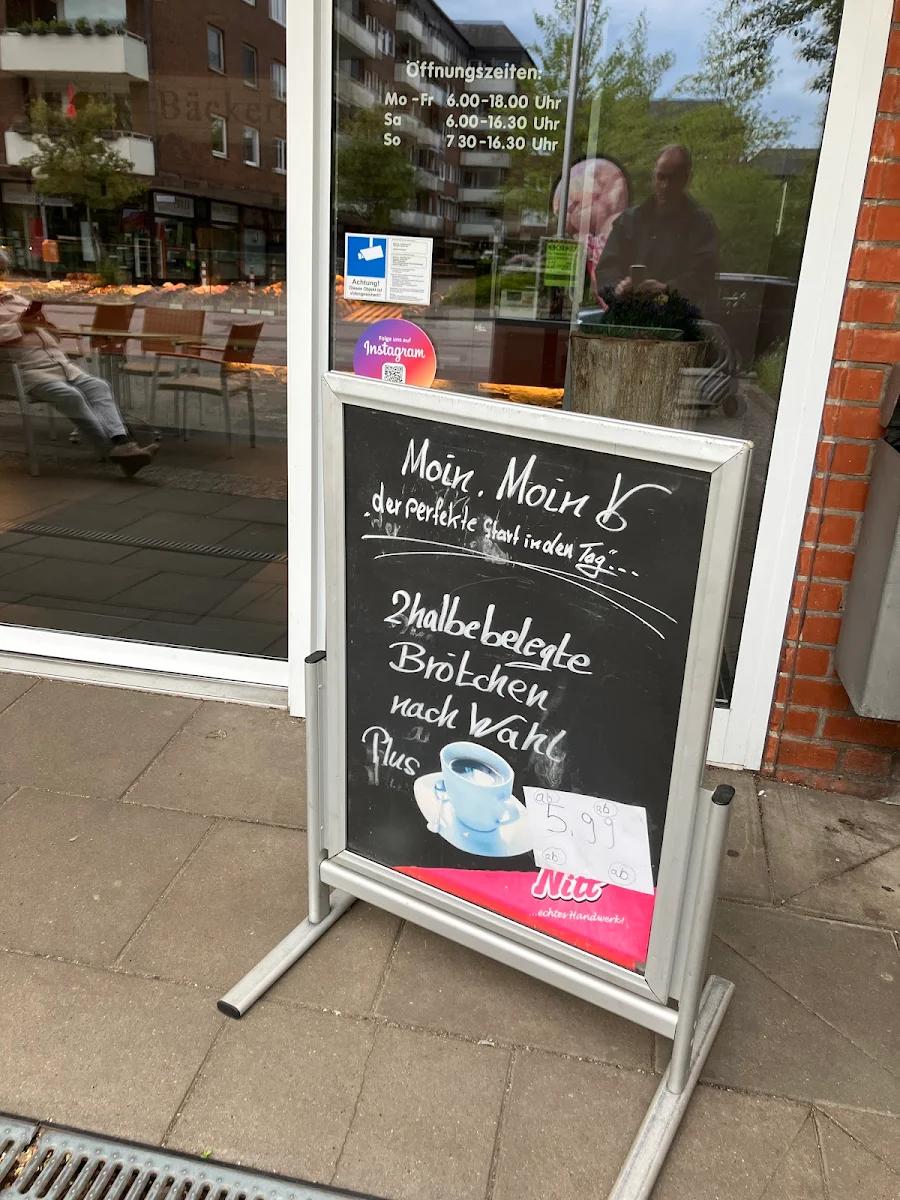 Bäcker
Öffnungszeiten:
Mo - Fr 6.00-18.00 Uhr
Sa 6.00-16.30 Uhr
So 7 30-16.30 Uhr
Achtung!
Dieses Objekt ist
videogesichert!
Folge uns auf
Instagram
Moin. Moin
"der perfekte Start in den Tag"...
2 halbebelegte
Brötchen
nach Wahl
Plus
ab ab
5,99
ab ab
Nitt
...echtes Handwerk!